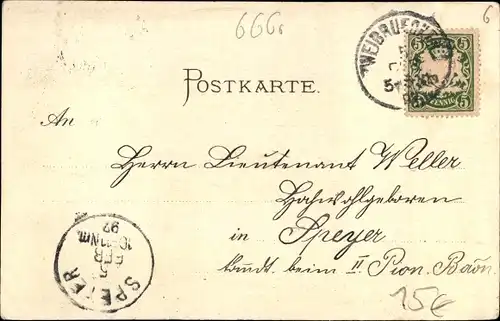 666
6
ZWEIBRUECKEN
5
5
PFENNIG
5
POSTKARTE.
An
Herrn Lieutenant Weller
Hochwohlgeboren
in Speyer
beim II. Pion. Baōn.
SPEYER
5
FEB
10-11 Nm.
97
15€